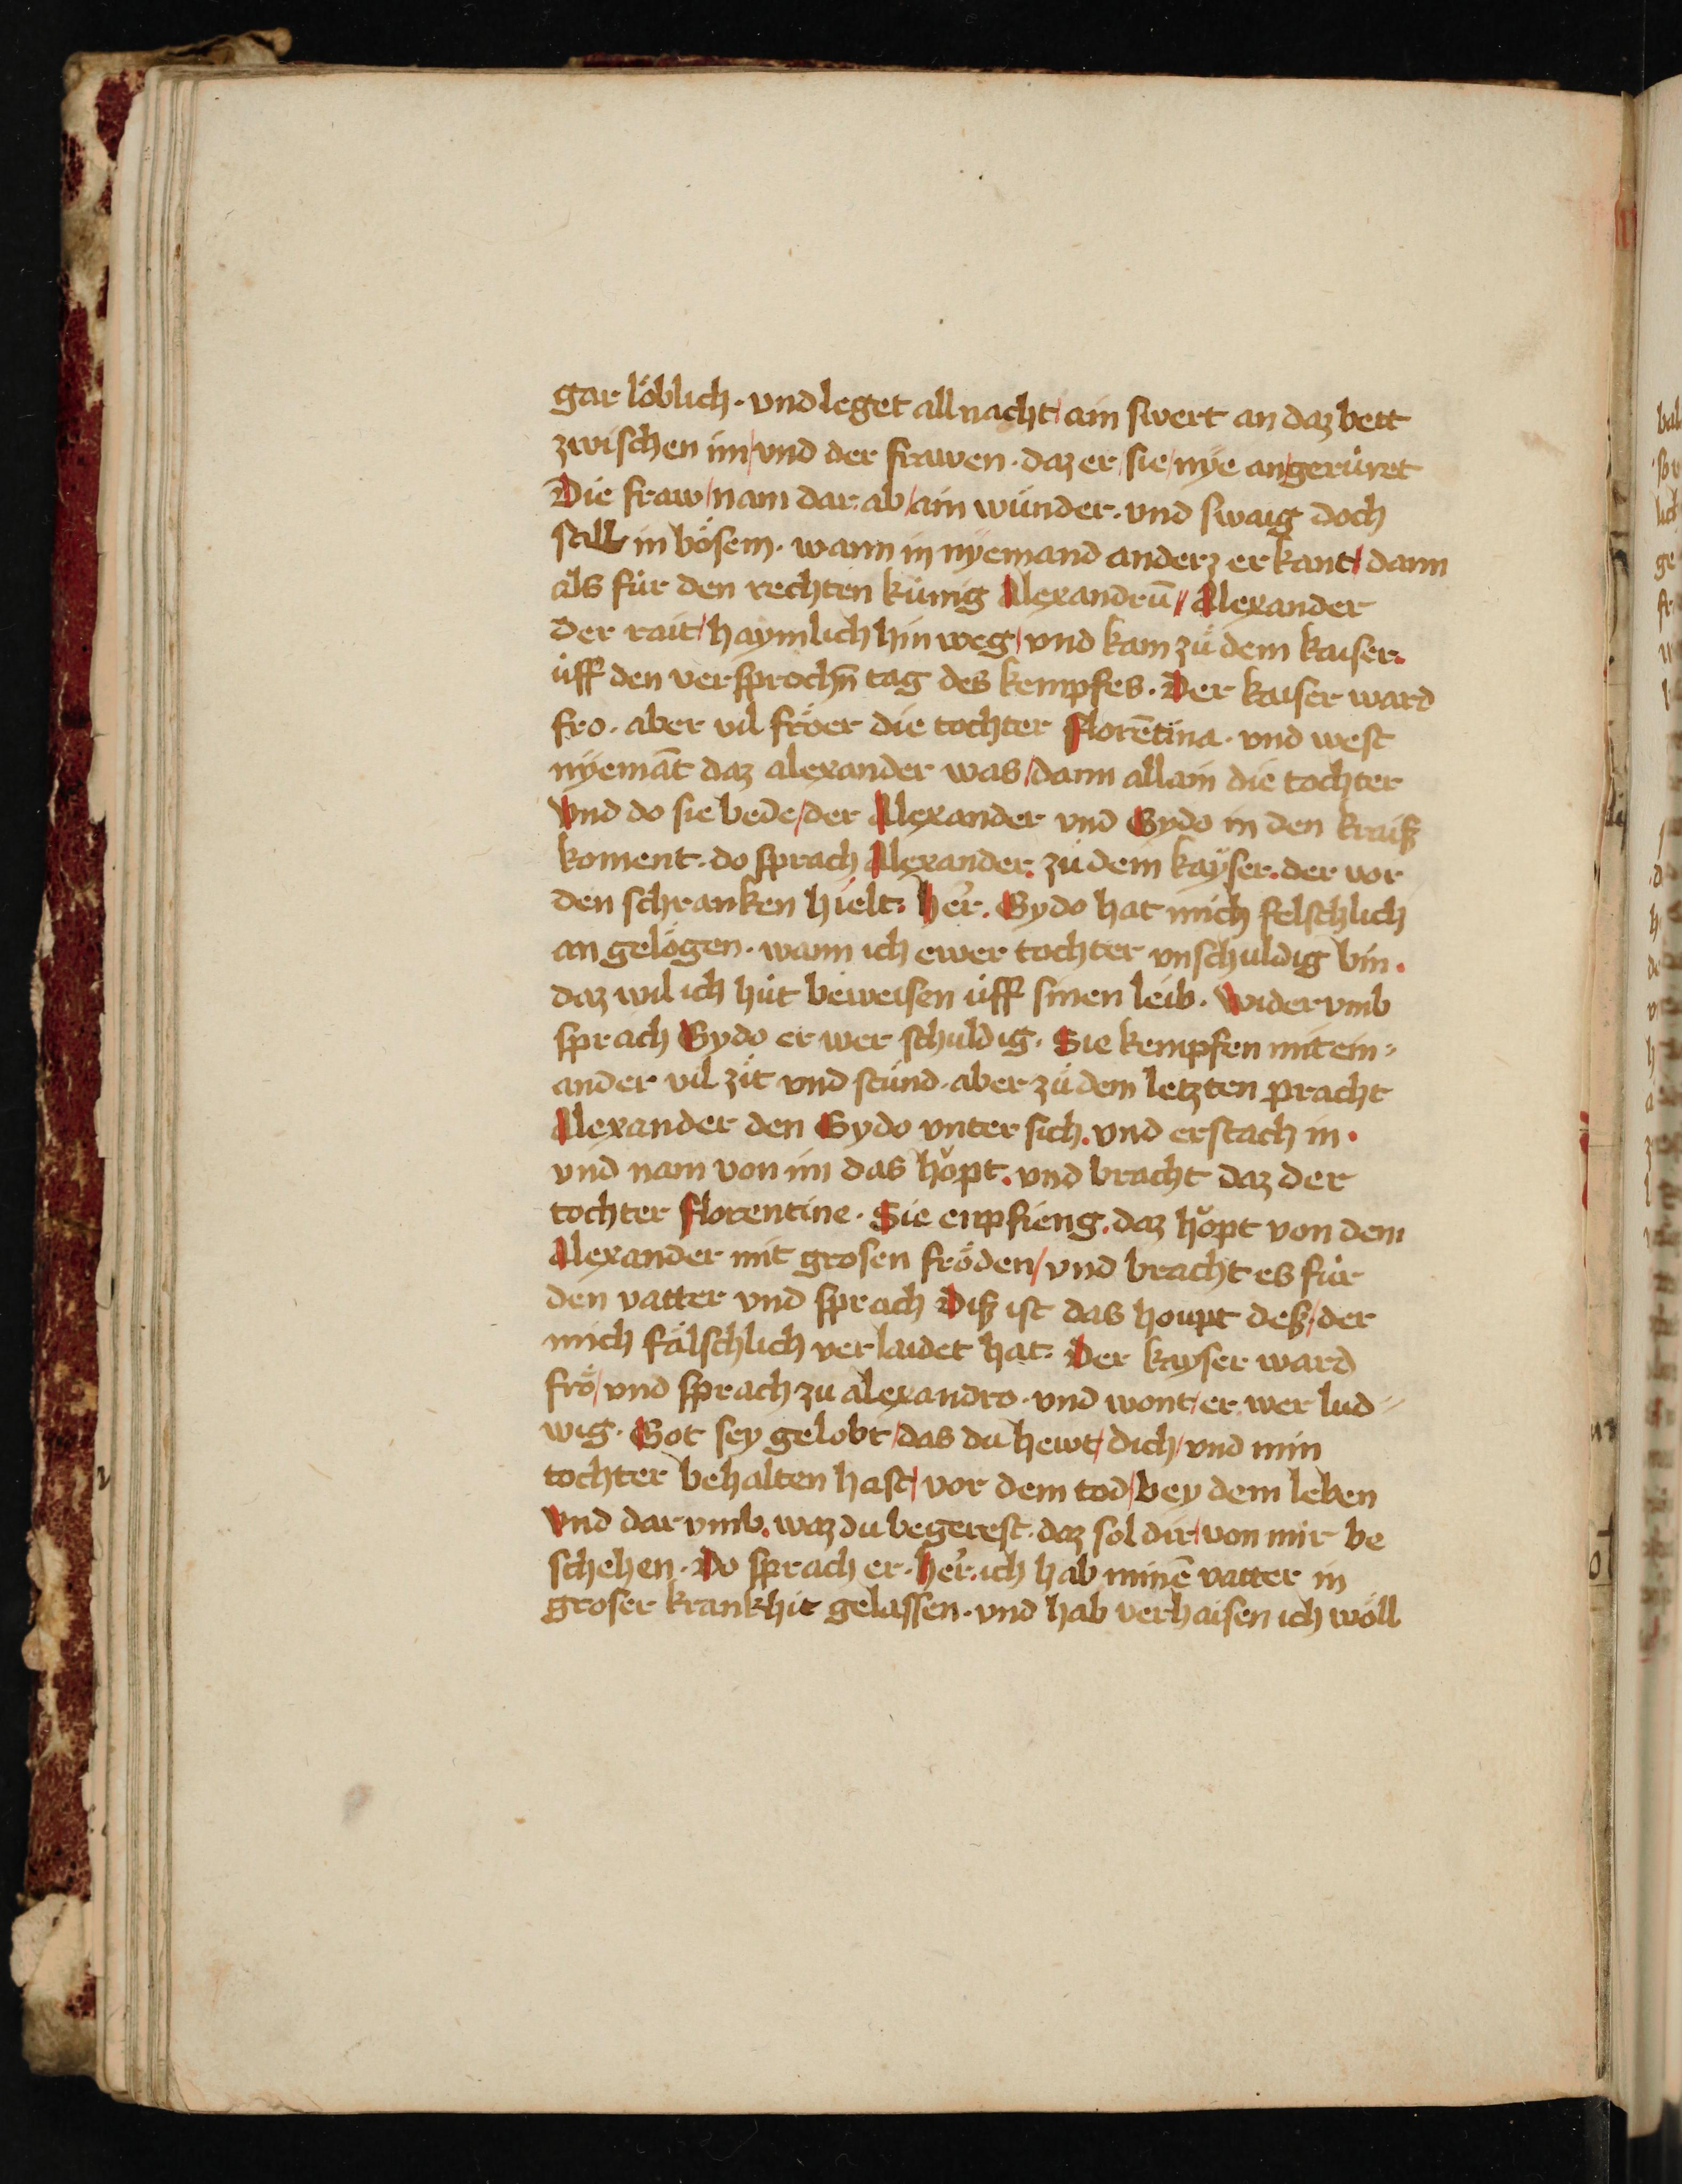 gar löblich · vnd leget all nacht / ain swert an daz bett
zwischen im / vnd der frawen · daz er / sie / nye an / gerüret
Die fraw / nam dar ab / ain wunder · vnd swaig doch
still in bösem · wann in nyemand anderz erkant / dann
als für den rechten künig Alexandrū // Alexander
der rait / haymlich hin weg / vnd kam zů dem kaiser.
uff den versprochn̄ tag des kempfes · Der kaiser ward
fro · aber vil fröer die tochter florētina · vnd west
nyemāt daz alexander was / dann allain die tochter
Vnd do sie bede / der Alexander vnd Gydo in den kraiß
koment · do sprach Alexander. zů dem kayser. der vor
den schranken hielt: her̄. Gydo hat mich felschlich
an gelögen · wann ich ewer tochter vnschuldig bin.
daz wil ich hüt beweisen uff sinen leib · Widervmb
sprach Gydo er wer schuldig · Sie kempfen mit ein⸗
ander vil zit vnd stund · aber zů dem letzten pracht
Alexander den Gydo vnter sich. vnd erstach in.
vnd nam von im das hopt. vnd bracht daz der
tochter florentine · Sie enpfieng. daz hopt von dem
Alexander mit grosen fröden / vnd bracht es für
den vatter vnd sprach Diß ist das houpt deß / der
mich fälschlich verlaidet hat: Der kayser ward
frö / vnd sprach zu alexandro · vnd wont / er wer lud⸗
wig · Got sey gelobt / das du hewt / dich / vnd min
tochter behalten hast / vor dem tod / bey dem leben
Vnd darvmb. waz du begerest · daz sol dir / von mir be
schehen · Do sprach er · her̄. ich hab minē vatter in
groser krankhit gelassen · vnd hab verhaisen ich wöll